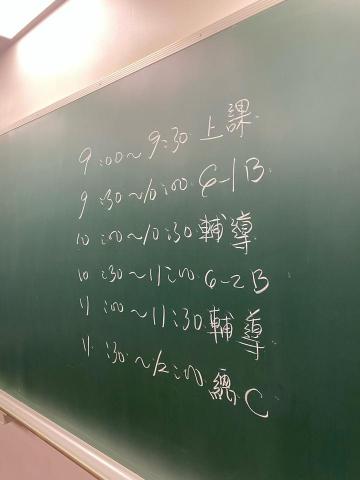 9:00~9:30 上課
9:30~10:00 6-1B
10:00~10:30 輔導
10:30~11:00 6-2B
11:00~11:30 輔導
11:30~12:00 總C